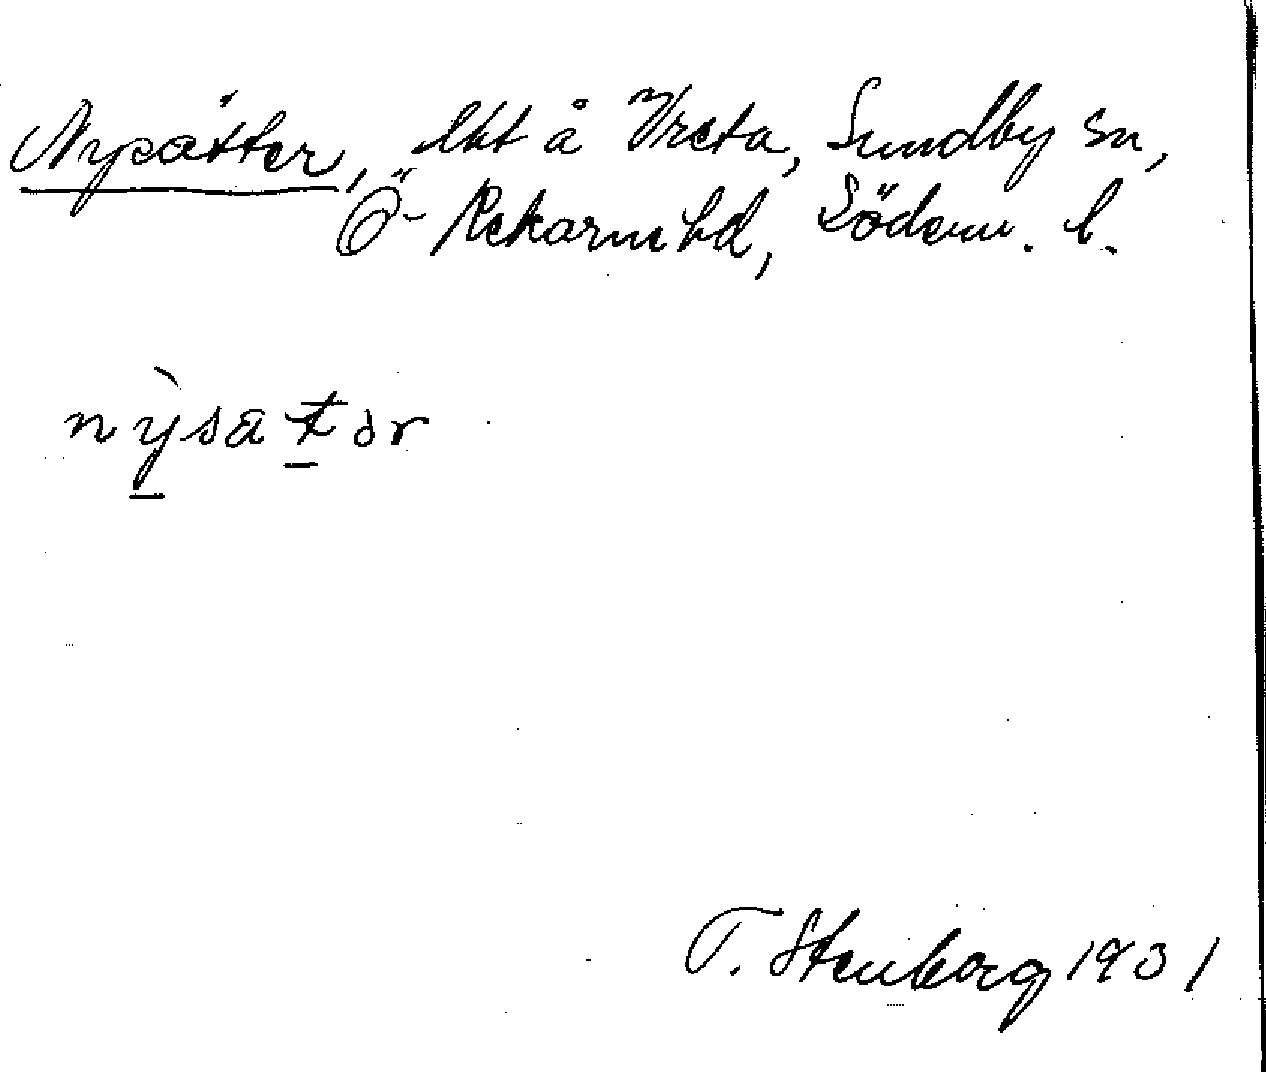 Nysätter, lht å Vreta, Sundby sn,
Ö-Rekarne hd, Söderm. l.
nỳsätər
T. Stenborg 1931